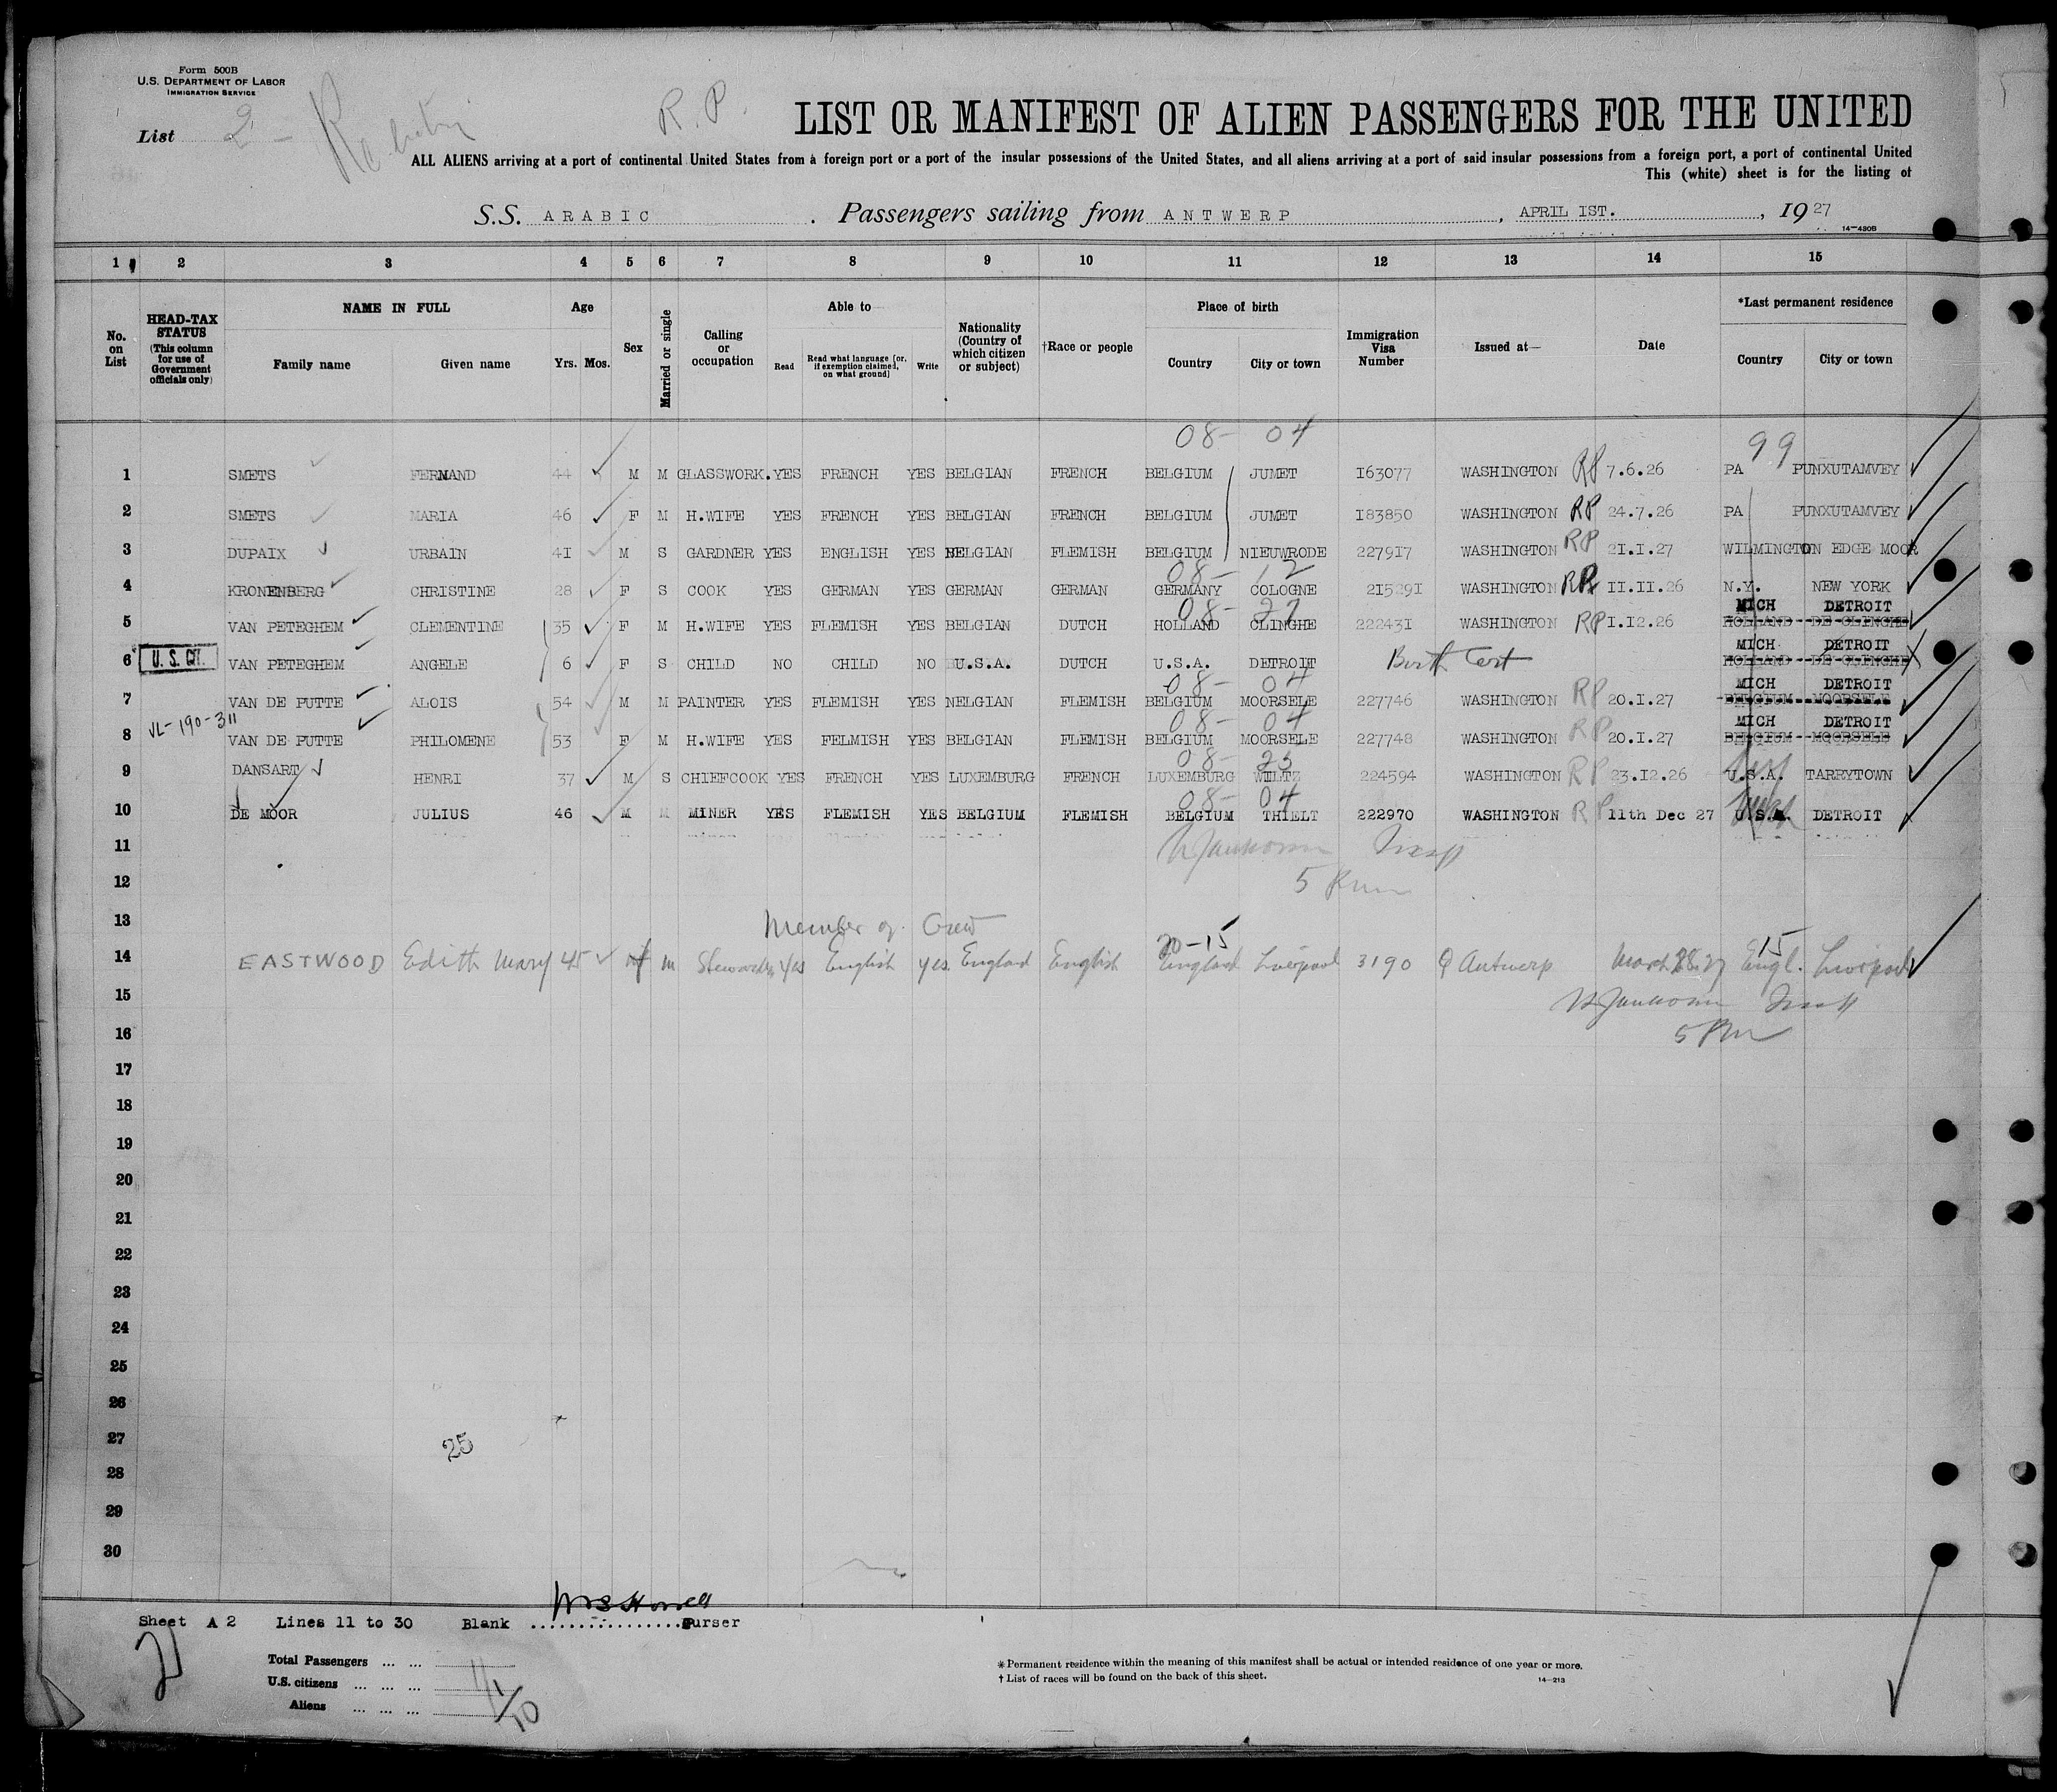 Form 500B
U.S. DEPARTMENT OF LABOR
IMMIGRATION SERVICE
List 2 -
R. P.
LIST OR MANIFEST OF ALIEN PASSENGERS FOR THE UNITED
ALL ALIENS arriving at a port of continental United States from a foreign port or a port of the insular possessions of the United States, and all aliens arriving at a port of said insular possessions from a foreign port, a port of continental United
This (white) sheet is for the listing of
S.S. ARABIC . Passengers sailing from ANTWERP , APRIL 1ST. , 1927
14—430B
1 2 3 4 5 6 7 8 9 10 11 12 13 14 15
No. on List
HEAD-TAX STATUS (This column for use of Government officials only)
NAME IN FULL
Family name Given name
Age
Yrs. Mos.
Sex
Married or single
Calling or occupation
Able to
Read Read what language [or, if exemption claimed, on what ground] Write
Nationality (Country of which citizen or subject)
†Race or people
Place of birth
Country City or town
Immigration Visa Number
Issued at—
Date
*Last permanent residence
Country City or town
08- 04 99
1 SMETS FERNAND 44 M M GLASSWORK. YES FRENCH YES BELGIAN FRENCH BELGIUM JUMET I63077 WASHINGTON RP 7.6.26 PA PUNXUTAMVEY
2 SMETS MARIA 46 F M H.WIFE YES FRENCH YES BELGIAN FRENCH BELGIUM JUMET I83850 WASHINGTON RP 24.7.26 PA PUNXUTAMVEY
3 DUPAIX URBAIN 4I M S GARDNER YES ENGLISH YES BELGIAN FLEMISH BELGIUM NIEUWRODE 2279I7 WASHINGTON RP 2I.I.27 WILMINGTON EDGE MOOR
08- 12
4 KRONENBERG CHRISTINE 28 F S COOK YES GERMAN YES GERMAN GERMAN GERMANY COLOGNE 2I529I WASHINGTON RP II.II.26 N.Y. NEW YORK
08- 27 MICH DETROIT
5 VAN PETEGHEM CLEMENTINE 35 F M H.WIFE YES FLEMISH YES BELGIAN DUTCH HOLLAND CLINGHE 22243I WASHINGTON RP I.I2.26 HOLLAND DE CLINGHE
MICH DETROIT
6 U. S. CIT. VAN PETEGHEM ANGELE 6 F S CHILD NO CHILD NO U.S.A. DUTCH U.S.A. DETROIT Birth Cert HOLLAND DE CLINGHE
08- 04 MICH DETROIT
7 VAN DE PUTTE ALOIS 54 M M PAINTER YES FLEMISH YES NELGIAN FLEMISH BELGIUM MOORSELE 227746 WASHINGTON RP 20.I.27 BELGIUM MOORSELE
VL-190-311 08- 04 MICH DETROIT
8 VAN DE PUTTE PHILOMENE 53 F M H.WIFE YES FELMISH YES BELGIAN FLEMISH BELGIUM MOORSELE 227748 WASHINGTON RP 20.I.27 BELGIUM MOORSELE
08- 23
9 DANSART HENRI 37 M S CHIEFCOOK YES FRENCH YES LUXEMBURG FRENCH LUXEMBURG WILTZ 224594 WASHINGTON RP 23.I2.26 U.S.A. TARRYTOWN
08- 04
10 DE MOOR JULIUS 46 M M MINER YES FLEMISH YES BELGIUM FLEMISH BELGIUM THIELT 222970 WASHINGTON RP 11th Dec 27 U.S.A. DETROIT
11
12
13 Member of Crew
20-15 15
14 EASTWOOD Edith Mary 45 f m Stewardess Yes English yes England English England Liverpool 3190 Antwerp March 28.27 Engl. Liverpool
15
16
17
18
19
20
21
22
23
24
25
26
27
25
28
29
30
Sheet A 2 Lines 11 to 30 Blank ................Purser
Total Passengers ... ...
U.S. citizens ... ... ...
Aliens ... ... ...
11/10
* Permanent residence within the meaning of this manifest shall be actual or intended residence of one year or more.
† List of races will be found on the back of this sheet.
14—213